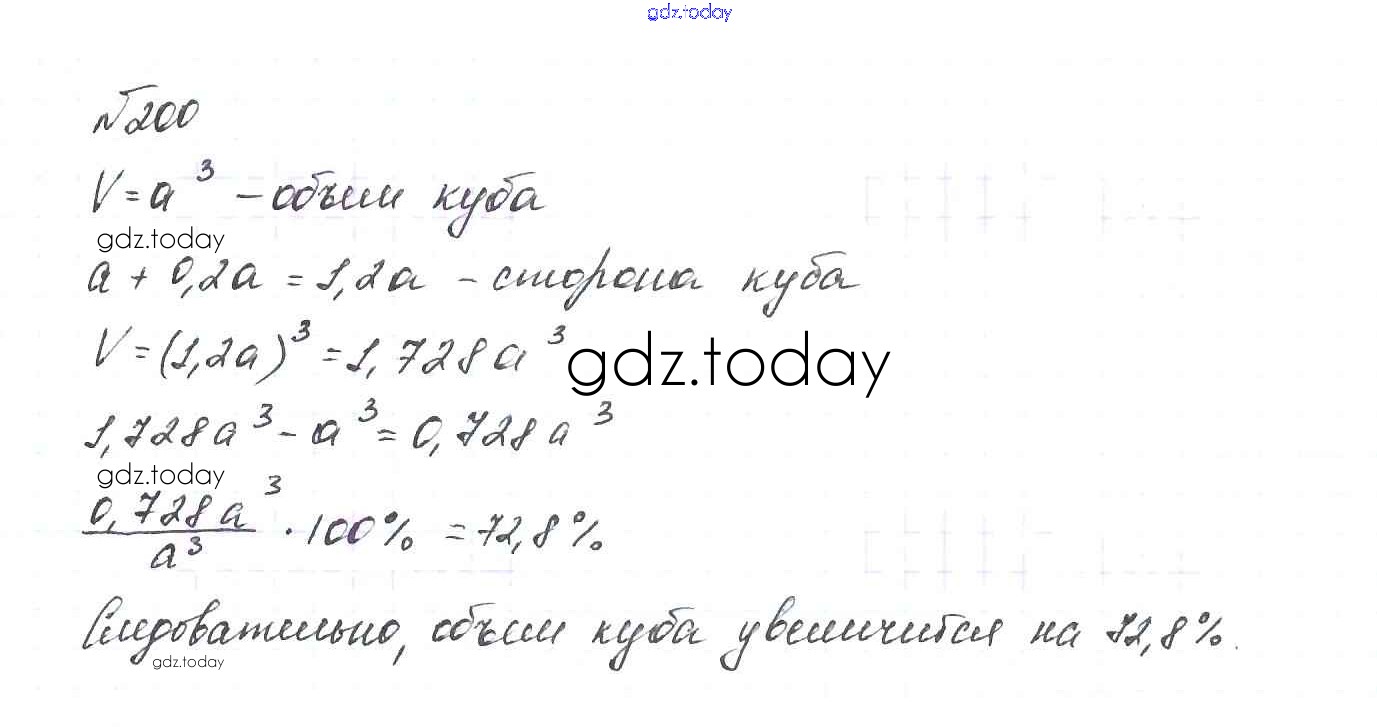 gdz.today
№200
V = a³ – объем куба
gdz.today
a + 0,2a = 1,2a – сторона куба
V = (1,2a)³ = 1,728a³
gdz.today
1,728a³ – a³ = 0,728a³
gdz.today
0,728a³/a³ · 100% = 72,8%
Следовательно, объем куба увеличится на 72,8%.
gdz.today